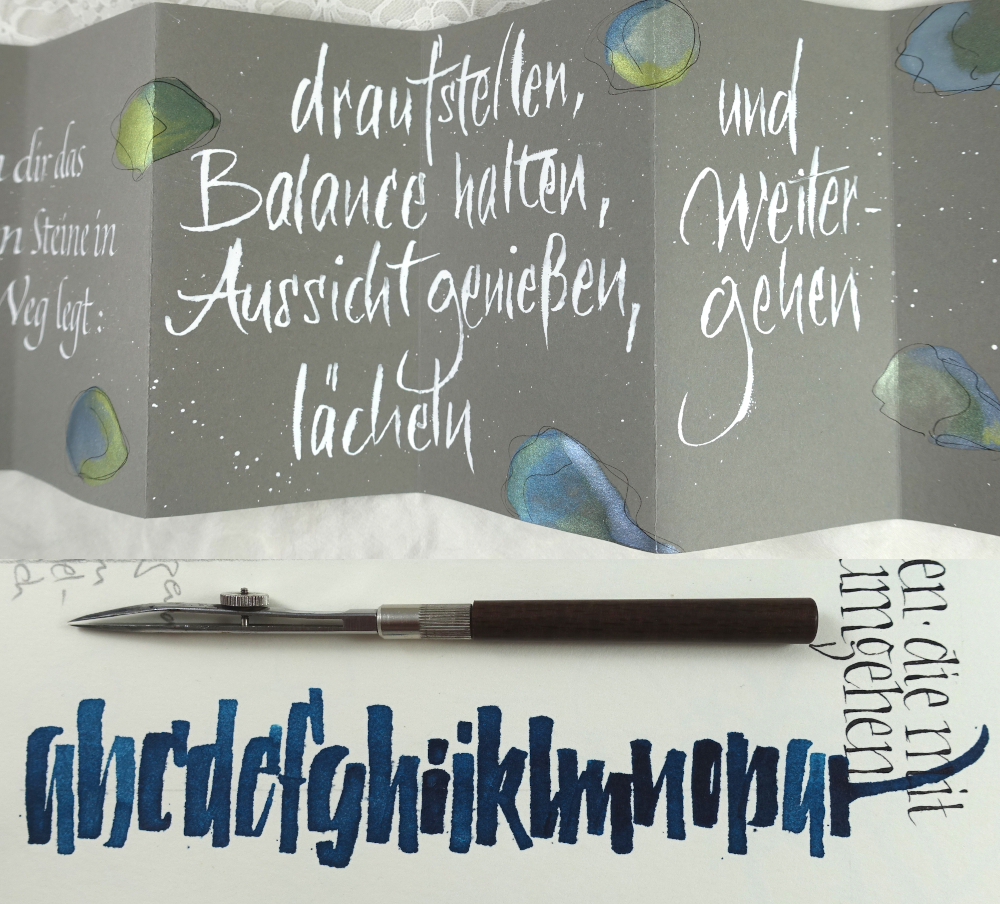 dir das
Steine in
Weg legt:
draufstellen,
Balance halten,
Aussicht genießen,
lächeln
und
Weiter-
gehen
en · die mit
umgehen
abcdefghijklmnopqr